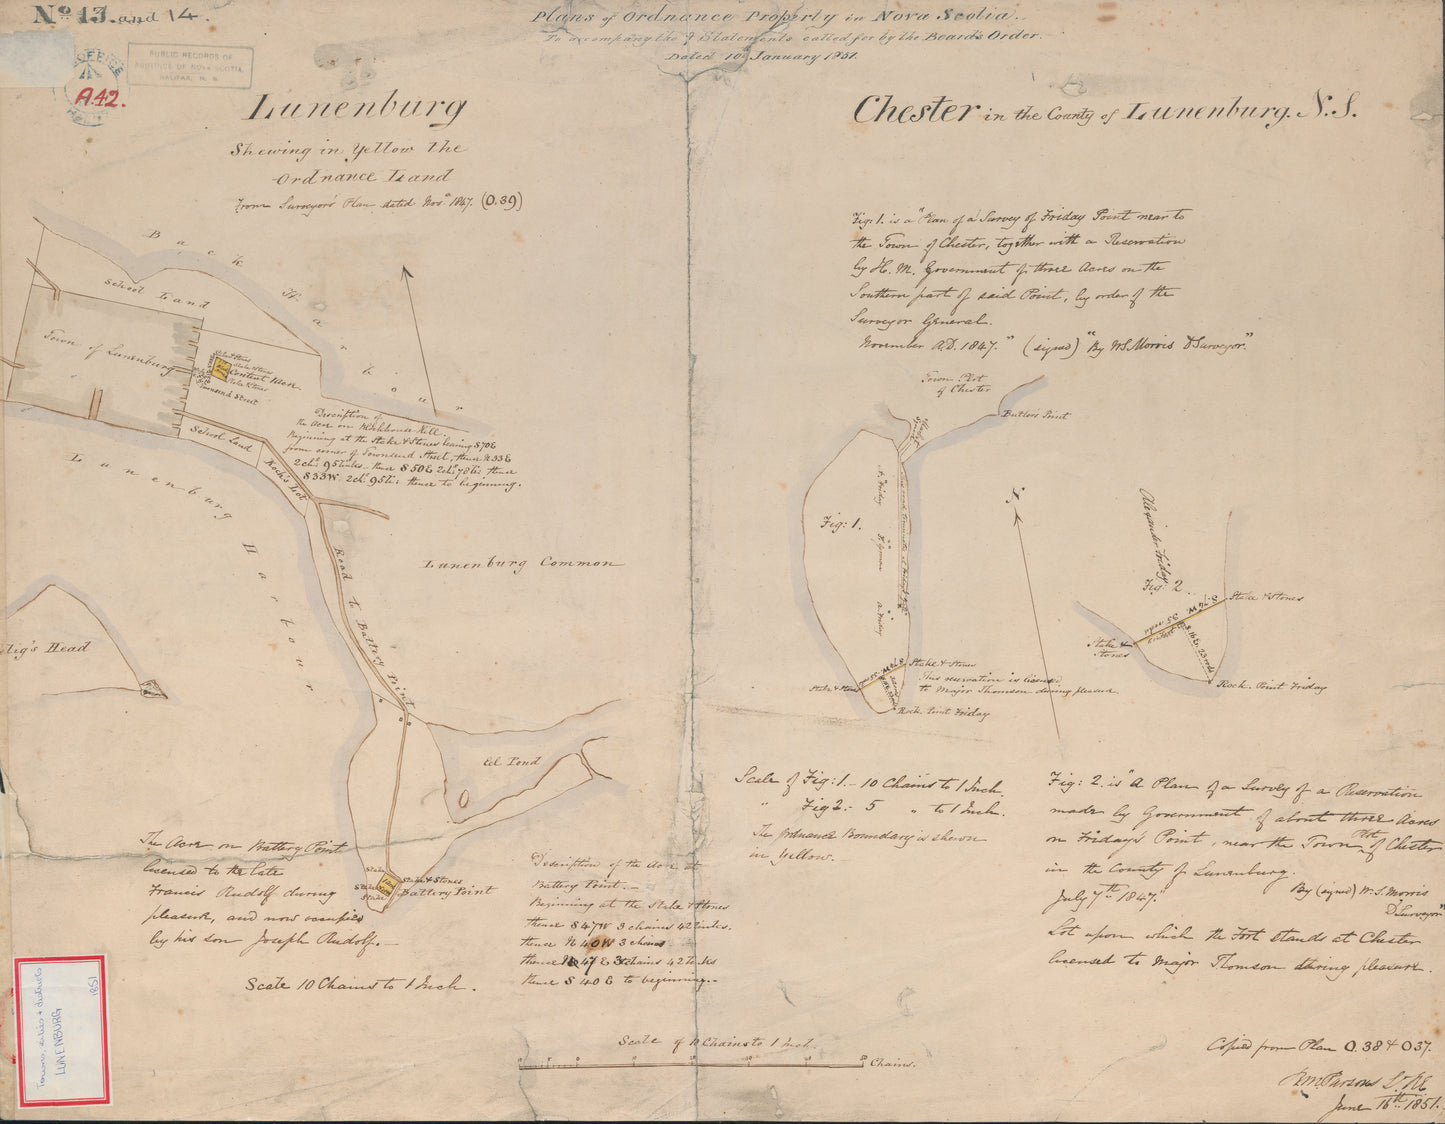 No. 13. and 14.
Plans of Ordnance Property in Nova Scotia.
To accompany the Statements called for by the Boards Order.
Dated 10th January 1851.
OFFICE
A.42.
PUBLIC RECORDS OF
PROVINCE OF NOVA SCOTIA
HALIFAX, N. S.
Lunenburg
Shewing in Yellow The
Ordnance Land
From Surveyors Plan dated Nov. 1847. (O.39)
Back Harbour
School Land
Town of Lunenburg
Stake & Stones
Stake & Stones
Content 1 Acre
Stake & Stones
Townsend Street
School Land
Rock's Lot
Description of
the Acre on Blockhouse Hill.
Beginning at the Stake & Stones bearing S 70 E
from corner of Townsend Street, thence N 33 E
2 chs. 95 links thence S 50 E 2 ch. 78 li: thence
S 33 W. 2 ch. 95 li: thence to beginning.
Lunenburg Harbour
Road to Battery Point
Lunenburg Common
lig's Head
Eel Pond
Stake
Stake & Stones
Stake
Stake
Battery Point
The Acre on Battery Point
licensed to the late
Francis Rudolf during
pleasure, and now occupied
by his son Joseph Rudolf.
Scale 10 Chains to 1 Inch.
Description of the Acre at
Battery Point.
Beginning at the Stake & Stones
thence S 47 W 3 chains 42 links.
thence N 40 W 3 chains
thence N 47 E 3 chains 42 links
thence S 40 E to beginning.
Scale of 10 Chains to 1 Inch.
Chains.
Chester in the County of Lunenburg. N.S.
Fig: 1. is a "Plan of a Survey of Friday Point near to
the Town of Chester, together with a Reservation
by H. M. Government of three Acres on the
Southern part of said Point, by order of the
Surveyor General.
November A.D. 1847." (signed) "By W.S. Morris D Surveyor."
Town Plot
of Chester
Butlers Point
Fig: 1.
A. Friday
A. Friday
Stake & Stones
Stake & Stones
This reservation is licensed
to Major Thomson during pleasure.
Rock. Point Friday
Alexander Friday
Fig: 2
S. 76 W. 35 rods
Stake & Stones
Stake &
Stones
Rock. Point Friday
Scale of Fig: 1. - 10 Chains to 1 Inch.
" Fig 2: - 5 " to 1 Inch.
The Ordnance Boundary is shewn
in Yellow.
Fig: 2. is "A Plan of a Survey of a Reservation
made by Government of about three Acres
on Friday's Point, near the Town Plot of Chester
in the County of Lunenburg.
July 7th 1847."
By (signed) W. S. Morris
D Surveyor"
Lot upon which the Fort stands at Chester
licensed to Major Thomson during pleasure.
Copied from Plan O.38 & O37.
Wm. Parsons Lt. RE
June 16th 1851.
Towns, cities & districts
LUNENBURG
1851